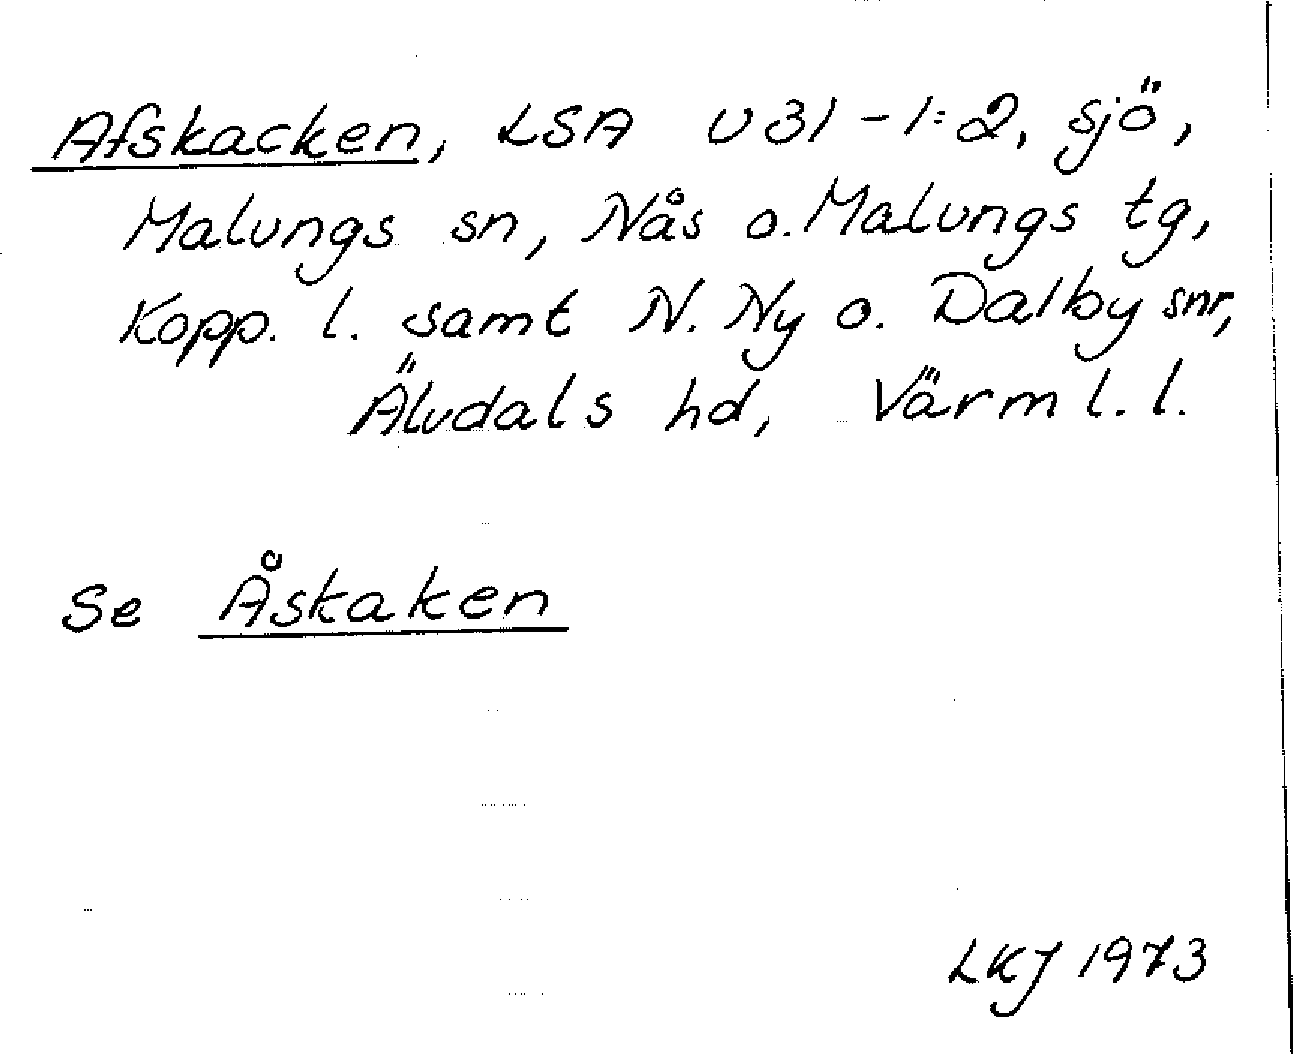 Afskacken, LSA U31-1:2, sjö,
Malungs sn, Nås o. Malungs tg,
Kopp. l. samt N. Ny o. Dalby snr,
Älvdals hd, Värml. l.
Se Åskaken
LKJ 1973